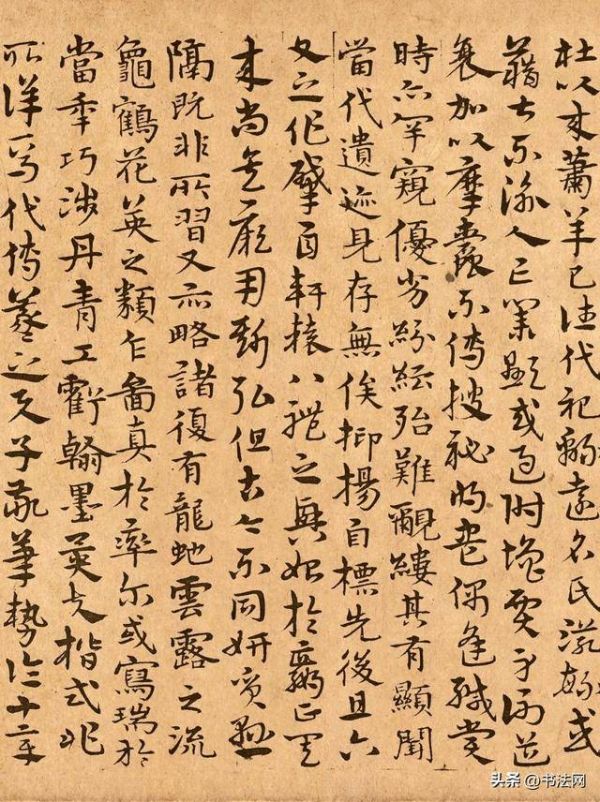 杜以來蕭羊已往代祀緜遠名氏滋繁或
藉甚不渝人亡業顯或憑附增價身謝道
衰加以糜蠹不傳搜秘將盡偶逢緘賞
時亦罕窺優劣紛紜殆難覼縷其有顯聞
當代遺迹見存無俟抑揚自標先後且六
文之作肇自軒轅八體之興始於嬴正其
來尚矣厥用斯弘但古今不同妍質懸
隔既非所習又亦略諸復有龍虵雲露之流
龜鶴花英之類乍圖真於率尔或寫瑞於
當年巧涉丹青工虧翰墨異夫楷式非
所詳焉代傳羲之與子敬筆勢論十章
头条 @书法网